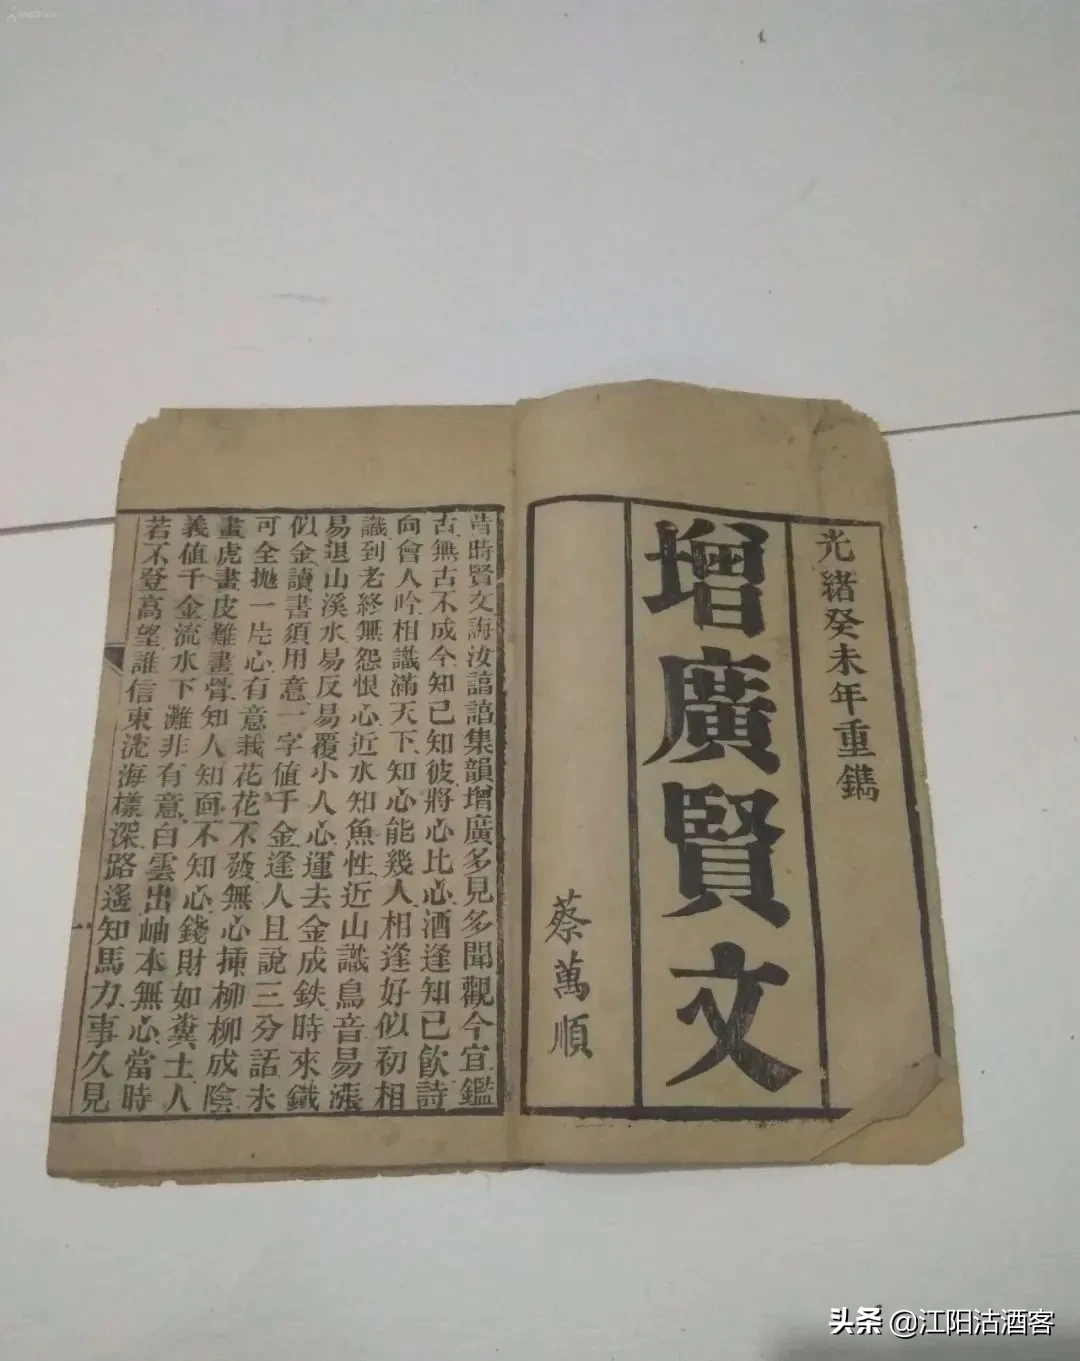 光緒癸未年重鐫
增廣賢文
蔡萬順
昔時賢文誨汝諳諳集韻增廣多見多聞觀今宜鑑
古無古不成今知己知彼將心比心酒逢知己飲詩
向會人吟相識滿天下知心能幾人相逢好似初相
識到老終無怨恨心近水知魚性近山識鳥音易漲
易退山溪水易反易覆小人心運去金成鉄時來鐵
似金讀書須用意一字值千金逢人且說三分話未
可全拋一片心有意栽花花不發無心揷柳柳成陰
畫虎畫皮難畫骨知人知面不知心錢財如糞土人
義值千金流水下灘非有意白雲出岫本無心當時
若不登高望誰信東流海樣深路遙知馬力事久見
头条 @江阳沽酒客